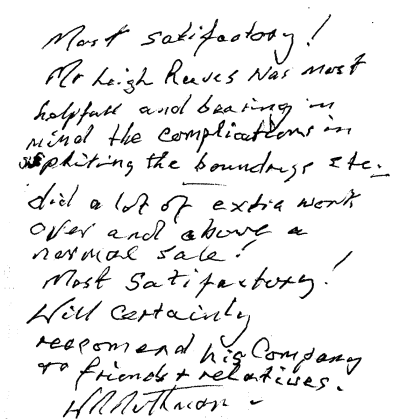 Most satifactory!
Mr Leigh Reeves was most
helpfull and bearing in
mind the complications in
spliting the boundrys etc.
did a lot of extra work
over and above a
normal sale!
Most Satifactory!
Will certainly
recomend his Company
to friends + relatives.